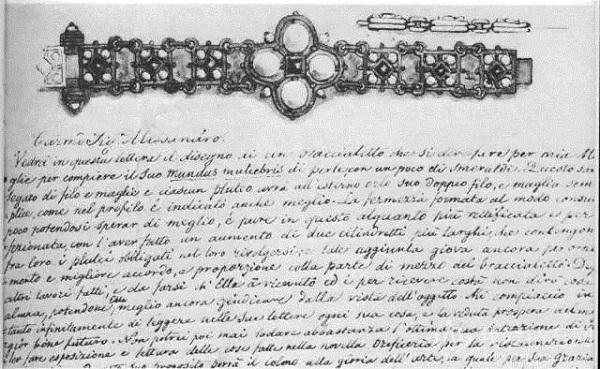 Carmo Sig. Alessandro.
Vedrà in questa lettera il disegno di un braccialetto che si dee fare per mia Mo
glie per compiere il suo mundus muliebris di perle con un poco di smeraldi. Questo sarà
legato di filo e maglie e ciascun plulco avrà all'esterno orlo suo doppio filo, e maglia sem
plice, come nel profilo è indicato anche meglio. La fermezza formata al modo consue
poco potendosi sperar di meglio, è pure in questo alquanto più rettificata e per
ferzionata, con l'aver fatto un aumento di due cilindretti più larghi, che contengon
fra loro i plulci obligati nel loro rivolgersi; e tale aggiunta giova ancora per orna
mento e migliore accordo, a proporzione colla parte di mezzo del braccialetto. Di
altri lavori fatti, e da farsi ch'Ella à ricevuto ed è per ricevere costà non dirò cosa
alcuna, potendone Ella meglio ancora giudicare dalla vista dell'oggetto. Mi compiaccio in
tanto infinitamente di leggere nelle sue lettere ogni sua cosa, e la veduta prospera del mag
gior bene futuro. Non potrei poi mai lodare abbastanza l'ottima sua intenzione di
far fare esposizione e lettura delle cose fatte nella novella orificeria per la
questo suo proposito porrà il colmo alla gloria dell'arte, a quale per sua grazia